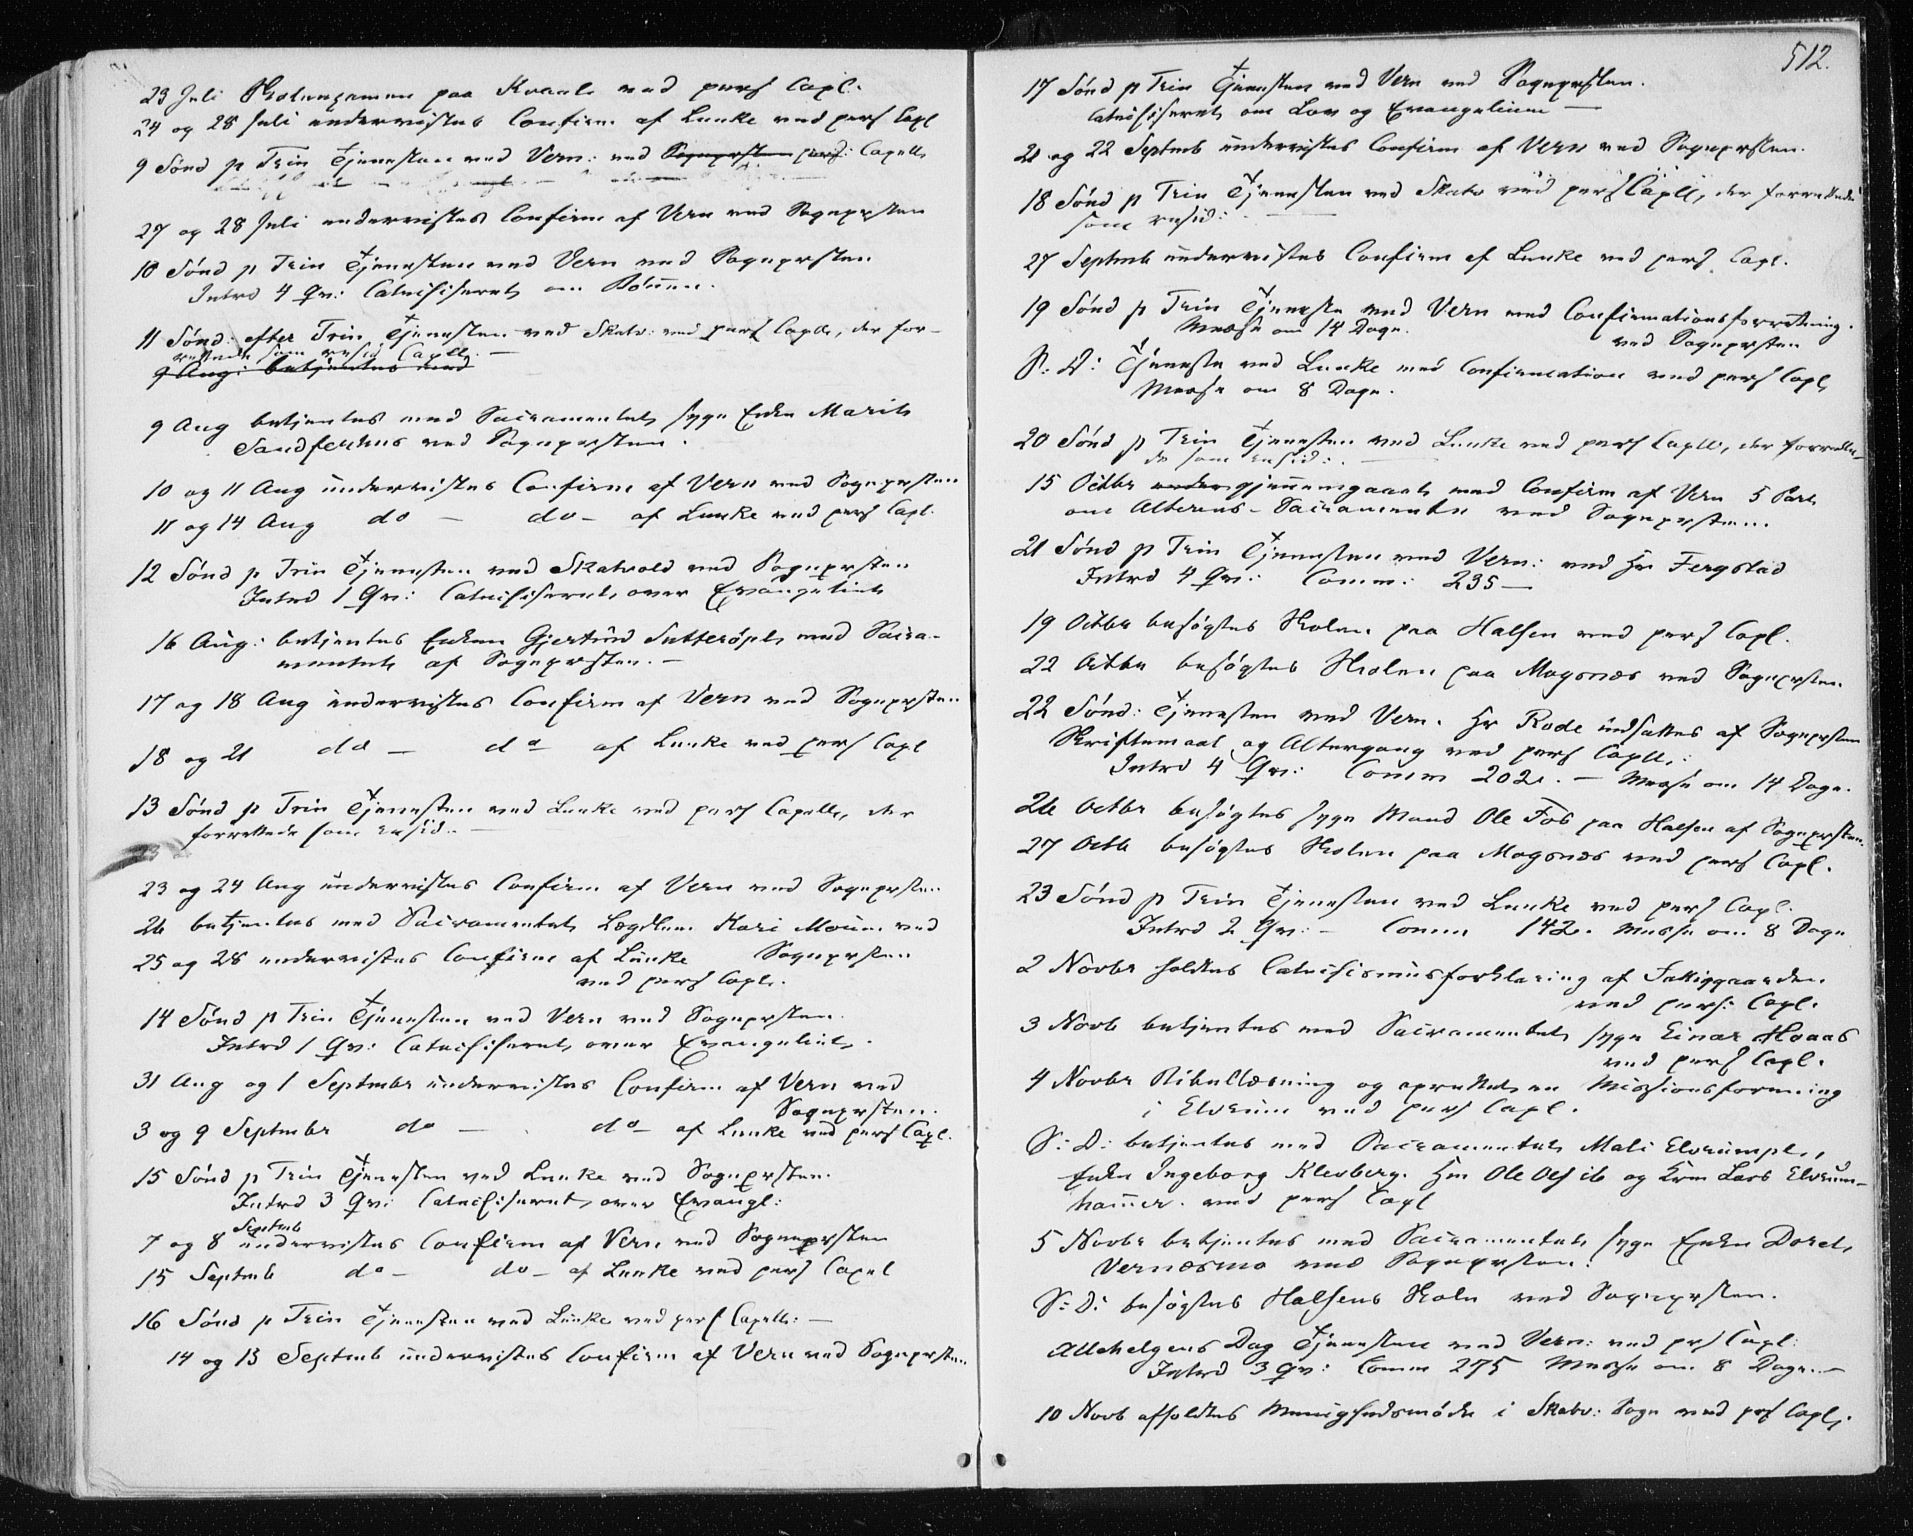 23 Juli Skoleexamen paa Kvaale ved pers Capl.
24 og 28 Juli undervistes Confirm af Lunke ved pers Capl
9 Sønd p Trin Tjenesten ved Vern: ved Sognepresten pers: Capell
27 og 28 Juli undervistes Confirm af Vern ved Sogneprsten
10 Sønd p Trin Tjenesten ved Vern ved Sogneprsten
Introd 4 Qv: Catechiseret om Bönnen.
11 Sønd: efter Trin Tjenesten ved Skatv: ved pers Capll, der for-
rettede som resid Capll. —
9 Aug: betjentes med
9 Aug betjentes med Sacramentet syge Enke Marit
Sandferhus ved Sogneprsten.
10 og 11 Aug undervistes Confirm af Vern ved Sogneprsten
11 og 14 Aug do — do - af Lunke ved pers Capl.
12 Sønd p Trin Tjenesten ved Skatvold ved Sogneprsten
Introd 1 Qv: Catechiseret over Evangeliet
16 Aug: betjentes Enken Gjertrud Sutterøpl. med Sacra-
mentet af Sogneprsten. —
17 og 18 Aug undervistes Confirm af Vern ved Sogneprsten
18 og 21 do — do af Lunke ved pers Capl
13 Sønd p Trin Tjenesten ved Lunke ved pers Capell, der
forrettede som resid. —
23 og 24 Aug undervistes Confirm af Vern ved Sogneprsten
26 betjentes med Sacramentet Lægdlem Kari Moum ved
Sogneprsten
25 og 28 undervistes Confirm af Lunke
ved pers Capl.
14 Sønd p Trin Tjenesten ved Vern ved Sogneprsten.
Introd 1 Qv: Catechiseret over Evangeliet.
31 Aug og 1 Septembr undervistes Confirm af Vern ved
Sogneprsten.
3 og 9 Septembr do — do - af Lunke ved pers Capl.
15 Sønd p Trin Tjenesten ved Lunke ved Sogneprsten.
Introd 3 Qv: Catechiseret over Evangl:
Septmb
7 og 8 undervistes Confirm af Vern ved Sogneprsten
15 Septmb do — do — af Lunke ved pers Capel
16 Sønd p Trin Tjenesten ved Lunke ved pers Capell: —
14 og 15 Septmb undervistes Confirm af Vern ved Sogneprsten
512.
17 Sønd p Trin Tjenesten ved Vern ved Sogneprsten.
Catechiseret om Lov og Evangelium —
21 og 22 Septmb undervistes Confirm af Vern ved Sogneprsten.
18 Sønd p Trin Tjenesten ved Skatv ved pers Capll, der forrettede
som resid: —
27 Septmb undervistes Confirm af Lunke ved pers. Capl.
19 Sønd p Trin Tjeneste ved Vern med Confirmationsforretning.
Messe om 14 Dage. ved Sogneprsten
S: D: Tjeneste ved Lunke med Confirmation ved pers Capl,
Messe om 8 Dage.
20 Sønd p Trin Tjenesten ved Lunke ved pers Capll, der forrette-
de som resid: . —
15 Octbr gjennemgaaet med Confirm af Vern 5 Part
om Alterens-Sacramente ved Sogneprsten.
21 Sønd p Trin Tjenesten ved Vern: ved Hr Fergstad
Introd 4 Qv: Comm: 235 —
19 Octbr besögtes Skolen paa Halsen ved pers Capl.
22 Octbr besögtes Skolen paa Mogsnæs ved Sogneprsten.
22 Sønd: Tjenesten ved Vern. Hr Rode indsattes af Sogneprsten
Skriftemaal og Altergang ved pers Capll.:
Introd 4 Qv: Comm 202. — Messe om 14 Dage.
26 Octbr besögtes syge Mand Ole Fos paa Halsen af Sogneprsten.
27 Octb besögtes Skolen paa Mogsnæs ved pers Capl.
23 Sønd p Trin Tjenesten ved Lunke ved pers Capl.
Introd 2 Qv: — Comm 142. Messe om 8 Dage
2 Novbr holdtes Catechismusforklaring af Fattiggaarden
ved pers: Capl.
3 Novb betjentes med Sacramentet syge Einar Hoaas
ved pers Capl.
4 Novbr Bibellæsning og oprettet en Missionsforening
i Elvrum ved pers Capl.
S: D: betjentes med Sacramentet Mali Elvrumpl.,
Enke Ingeborg Klevberg. Hm Ole Ols ib og Krm Lars Elvrum-
hammer. ved pers Capl
5 Novbr betjentes med Sacramentet syge Enken Doret
Vernæsmo ved Sogneprsten.
S: D: besögtes Halsens Skole ved Sogneprsten.
Allehelgens Dag Tjenesten ved Vern: ved prs Capl:
Introd 3 Qv: Comm 275 Messe om 8 Dage. —
10 Novb afholdtes Menighedsmöde i Skatv: Sogn ved prs Capl.